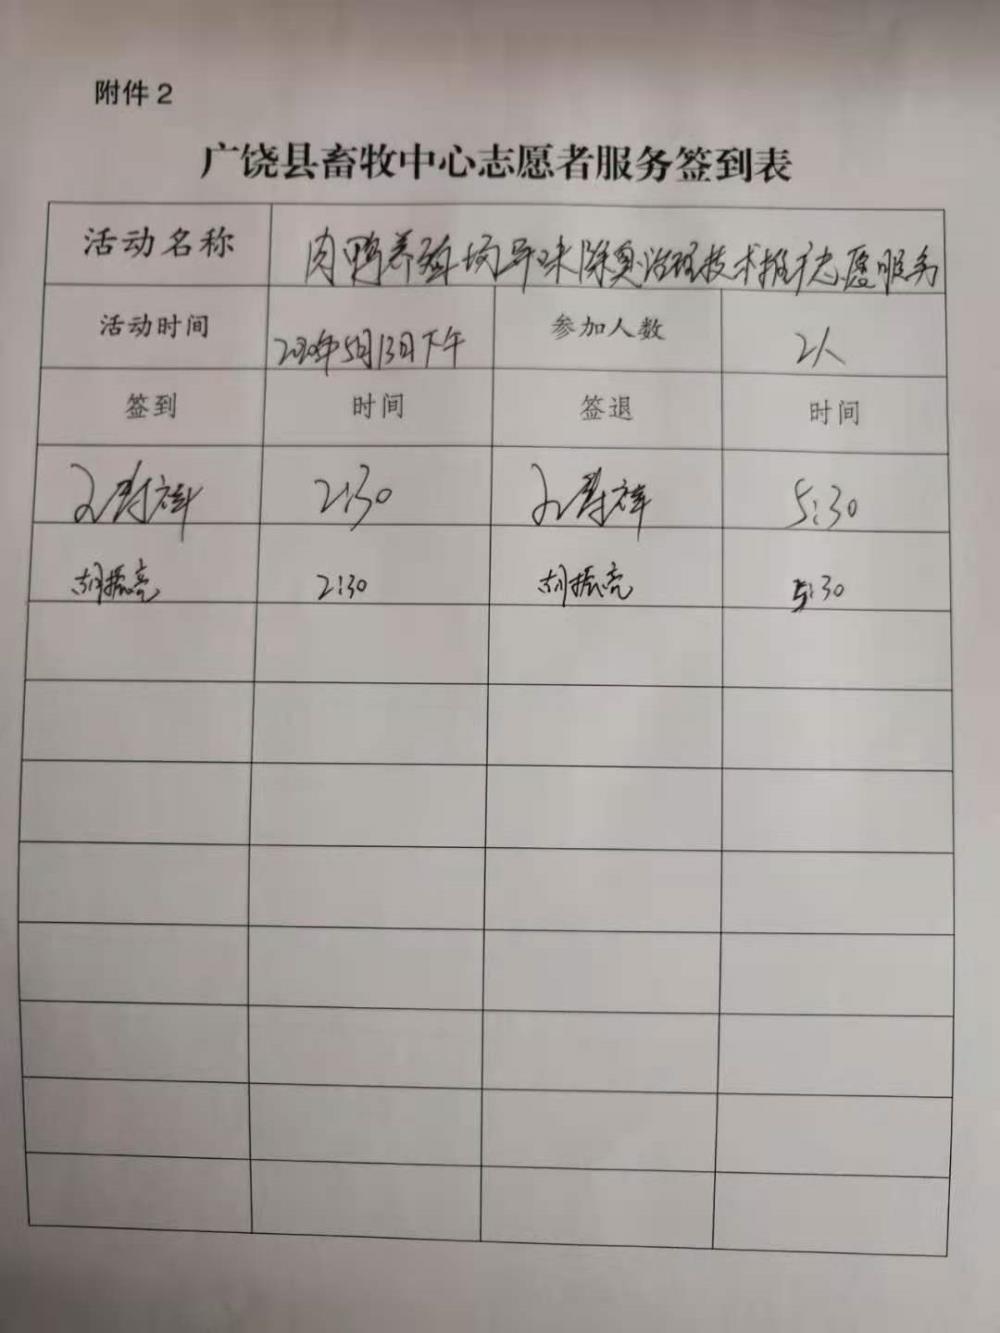 附件2
广饶县畜牧中心志愿者服务签到表
活动名称 肉鸭养殖场异味除臭治理技术推广志愿服务
活动时间 2020年5月13日下午 参加人数 2人
签到 时间 签退 时间
2:30 5:30
胡振亮 2:30 胡振亮 5:30